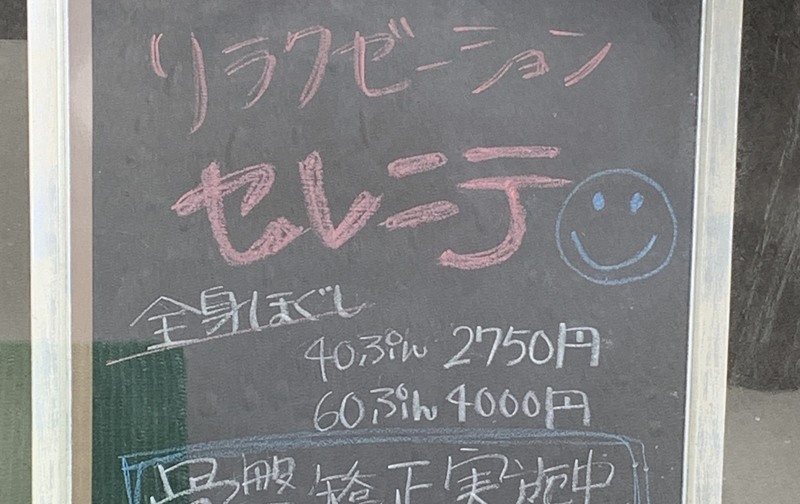 リラクゼーション
セレニテ
全身ほぐし
40ぷん 2750円
60ぷん 4000円
骨盤矯正実施中